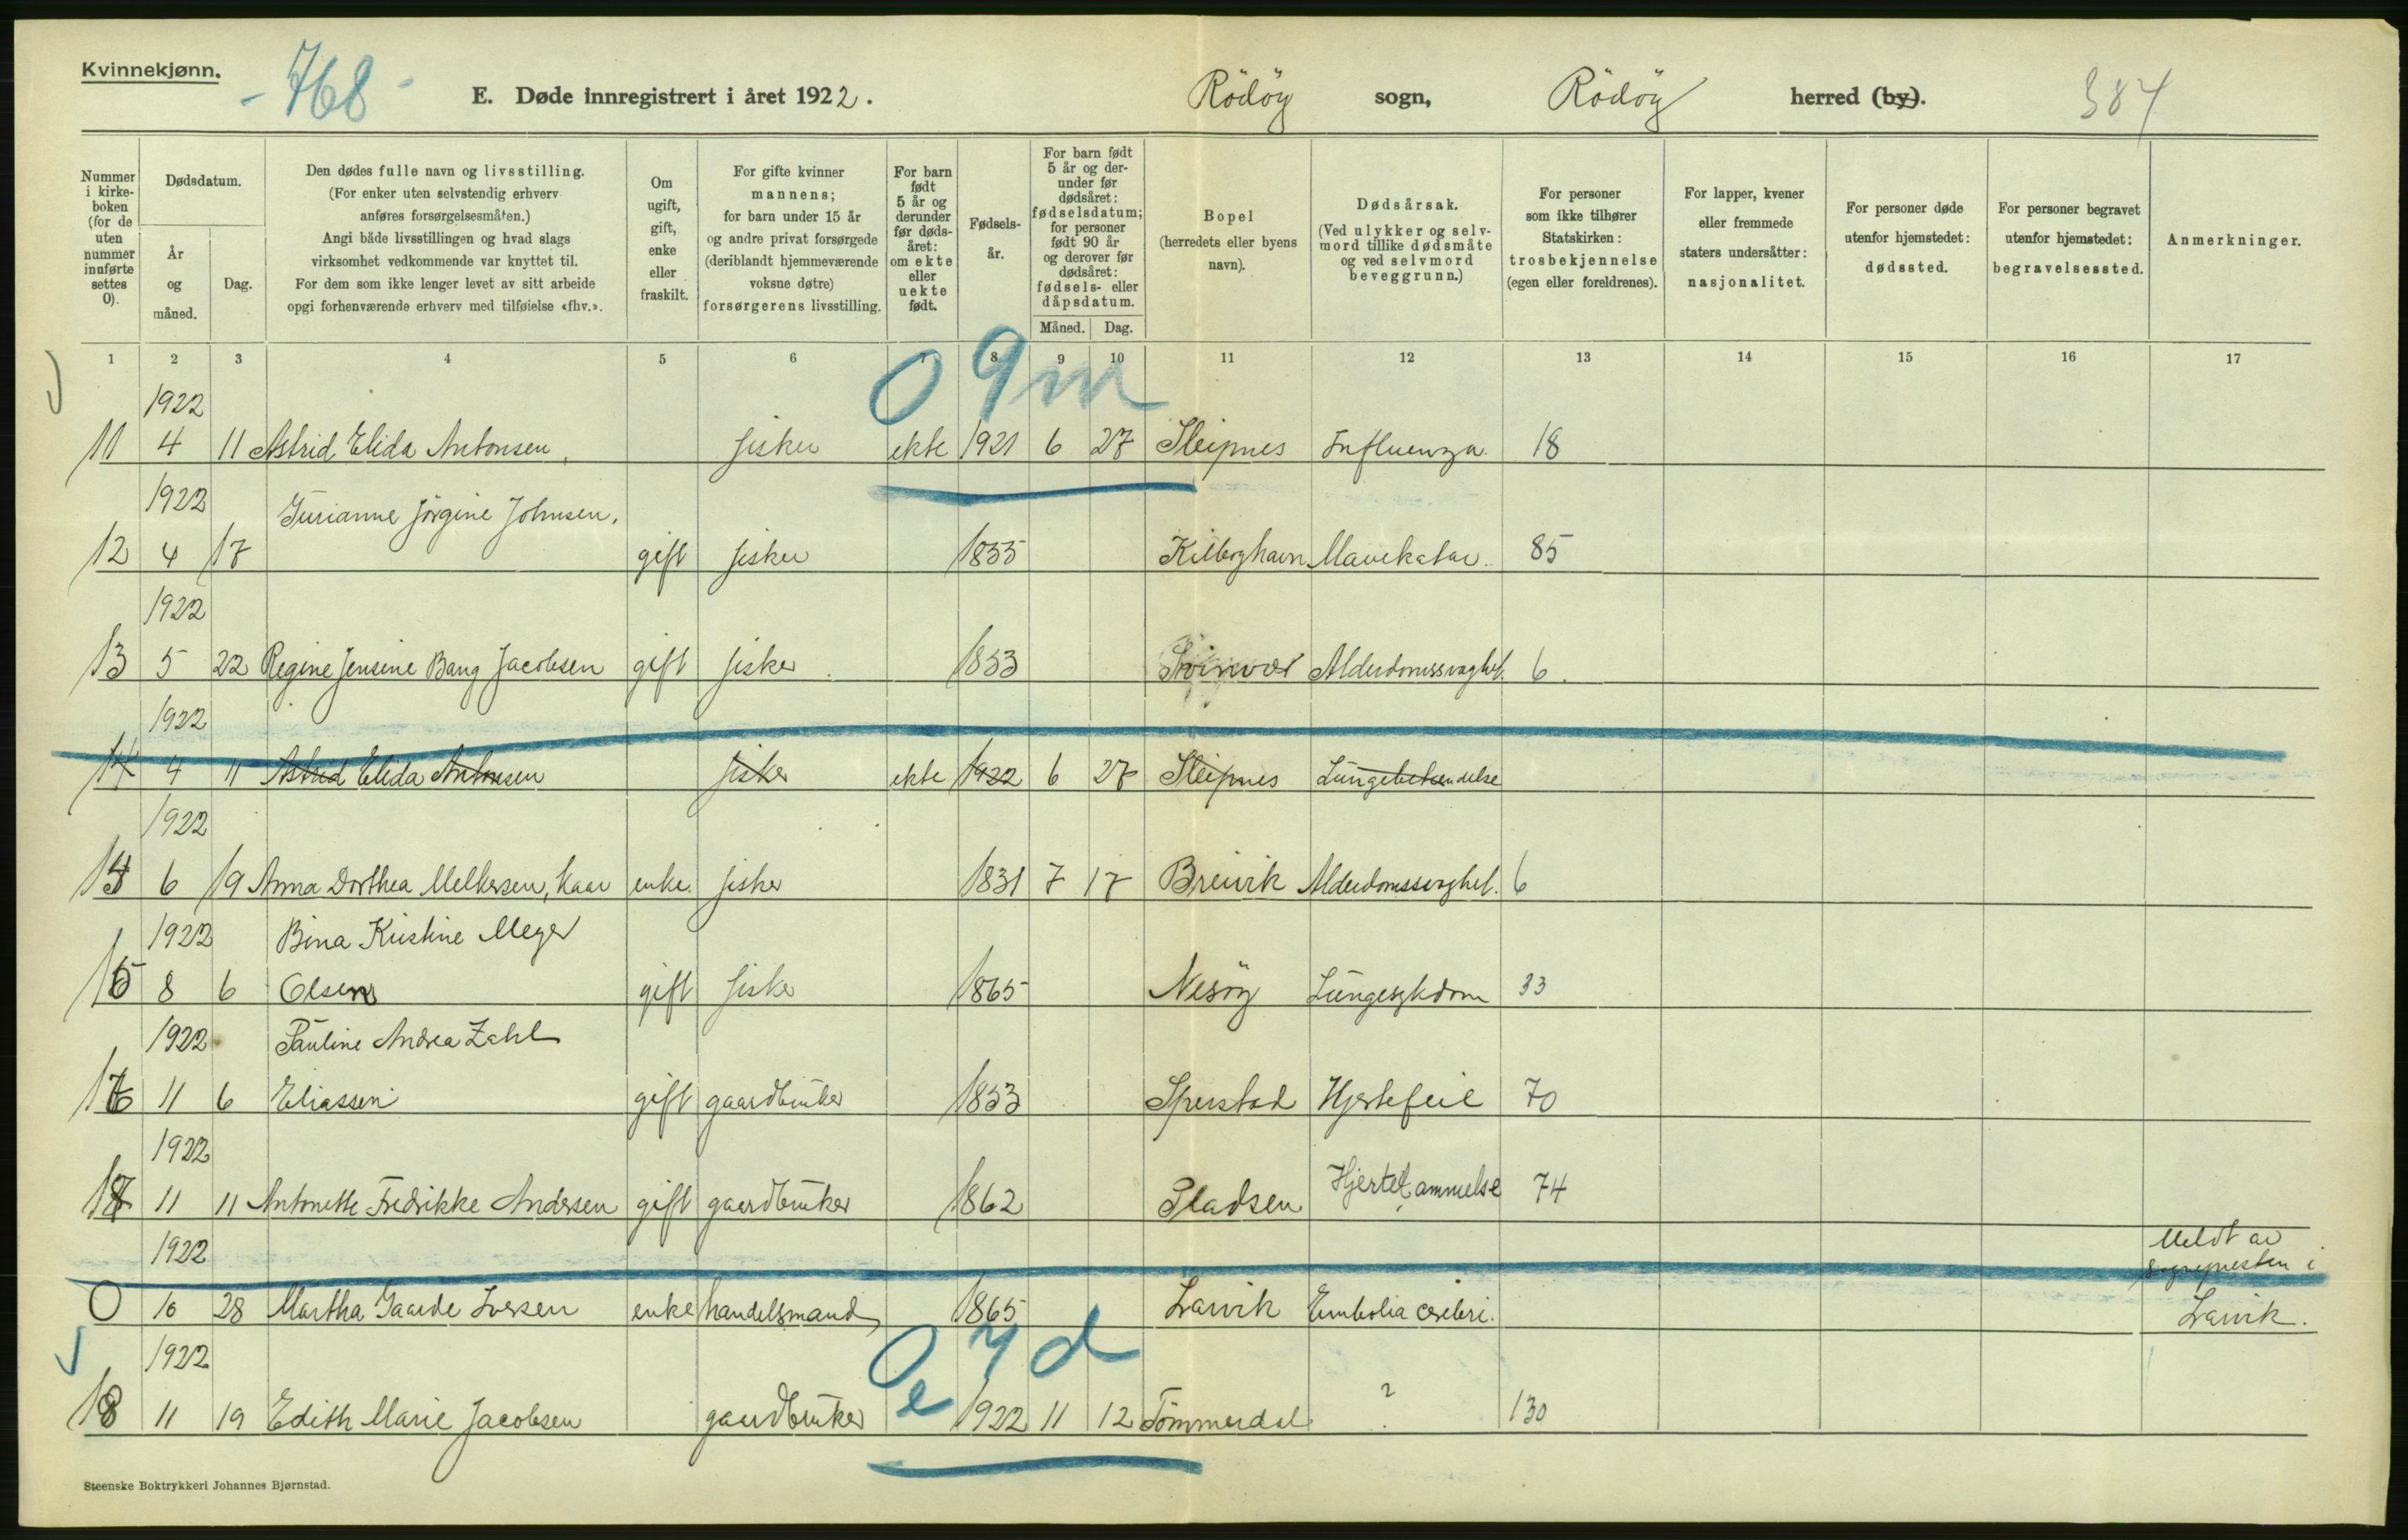 Kvinnekjønn.
- 768 -
E. Døde innregistrert i året 1922. Rödöy sogn, Rödöy herred (by). 384
Nummer i kirke- boken (for de uten nummer innførte settes 0).
Dødsdatum.
År og måned.
Dag.
Den dødes fulle navn og livsstilling.
(For enker uten selvstendig erhverv
anføres forsørgelsesmåten.)
Angi både livsstillingen og hvad slags
virksomhet vedkommende var knyttet til.
For dem som ikke lenger levet av sitt arbeide
opgi forhenværende erhverv med tilføielse «fhv.».
Om ugift, gift, enke eller fraskilt.
For gifte kvinner
mannens;
for barn under 15 år
og andre privat forsørgede
(deriblandt hjemmeværende
voksne døtre)
forsørgerens livsstilling.
For barn født 5 år og derunder før døds- året: om ekte eller uekte født.
Fødsels- år.
For barn født 5 år og der- under før dødsåret: fødselsdatum; for personer født 90 år og derover før dødsåret: fødsels- eller dåpsdatum.
Måned. Dag.
Bopel
(herredets eller byens
navn).
Dødsårsak.
(Ved ulykker og selv-
mord tillike dødsmåte
og ved selvmord
beveggrunn.)
For personer
som ikke tilhører
Statskirken:
trosbekjennelse
(egen eller foreldrenes).
For lapper, kvener
eller fremmede
staters undersåtter:
nasjonalitet.
For personer døde
utenfor hjemstedet:
dødssted.
For personer begravet
utenfor hjemstedet:
begravelsessted.
Anmerkninger.
1 2 3 4 5 6 7 8 9 10 11 12 13 14 15 16 17
0 9 m
1922
11 4 11 Astrid Elida Antonsen, fisker ekte 1921 6 27 Sleipnes Influenza. 18
1922
Jurianne Jörgine Johnsen.
12 4 17 gift fisker 1855 Kilboghavn Mavekatar. 85
1922
13 5 22 Regine Jensine Bang Jacobsen gift fisker 1853 Alderdomssvaghet. 6.
1922
14 4 11 Astrid Elida Antonsen fisker ekte 1922 6 27 Sleipnes Lungebetændelse
1922
14 6 19 Anna Dorthea Melkersen, kaar enke. fisker 1831 7 17 Breivik Alderdomssvaghet. 6
1922 Bina Kristine Meyer
15 8 6 Olsen gift fisker 1865 Nesöy Lungesykdom 33
1922 Pauline Andrea Zahl
16 11 6 Eliassen gift gaardbruker 1853 Sperstad Hjertefeil 70
1922
17 11 11 Antonette Fredrikke Andersen gift gaardbruker 1862 Pladsen Hjertelammelse 74
1922 Meldt av
sognepresten i
0 10 28 Martha Gaarde Iversen enke handelsmand 1865 Larvik Embolia cerebri. Larvik.
0 7 d
1922
18 11 19 Edith Marie Jacobsen gaardbruker e 1922 11 12 Tömmerdal ? 130
Steenske Boktrykkeri Johannes Bjørnstad.